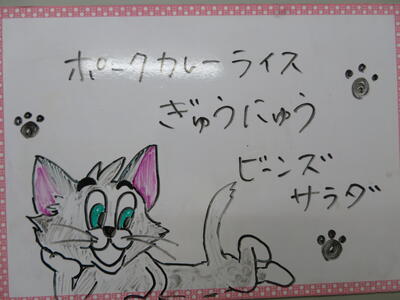 ポークカレーライス
ぎゅうにゅう
ビーンズ
サラダ